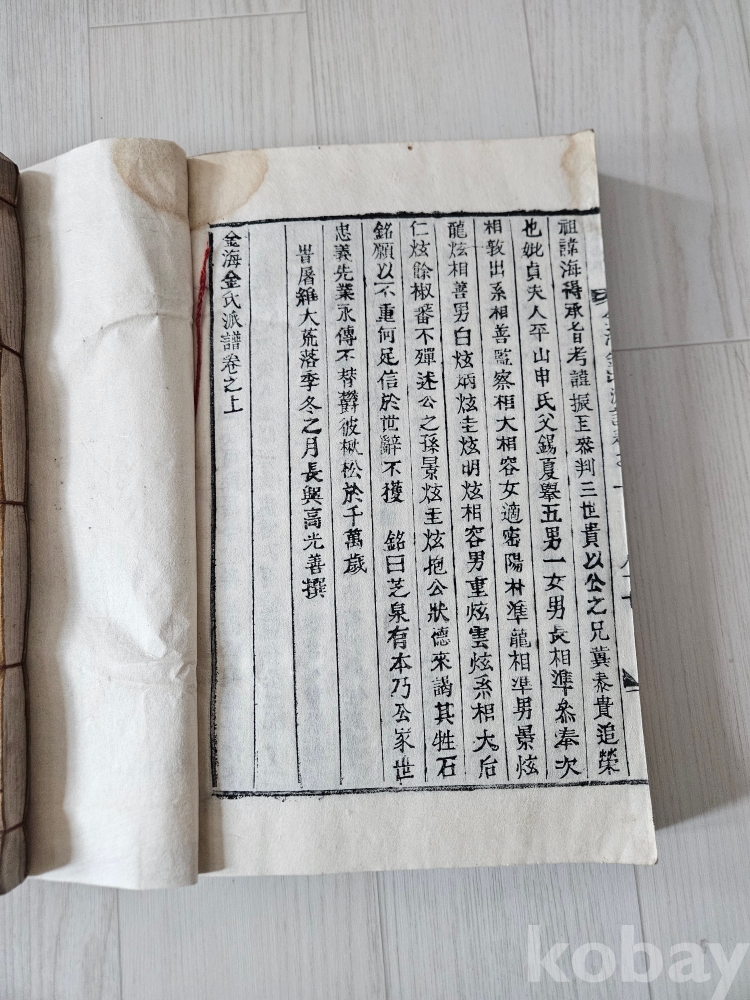 祖諱海得承旨考諱振玉參判三世貴以公之兄冀泰貴追榮
也妣貞夫人平山申氏父錫夏擧五男一女男長相準參奉次
相敎出系相善監察相大相容女適密陽朴準龍相準男景炫
龍炫相善男白炫炳炫圭炫明炫相容男重炫雲炫系相大后
仁炫餘椒蕃不殫述公之孫景炫圭炫抱公狀德來謁其牲石
銘願以不重何足信於世辭不獲 銘曰芝泉有本乃公家世
忠義先業永傳不替欝彼楸松於千萬歲
旹屠維大荒落季冬之月長興高光善撰
金海金氏派譜卷之上
kobay